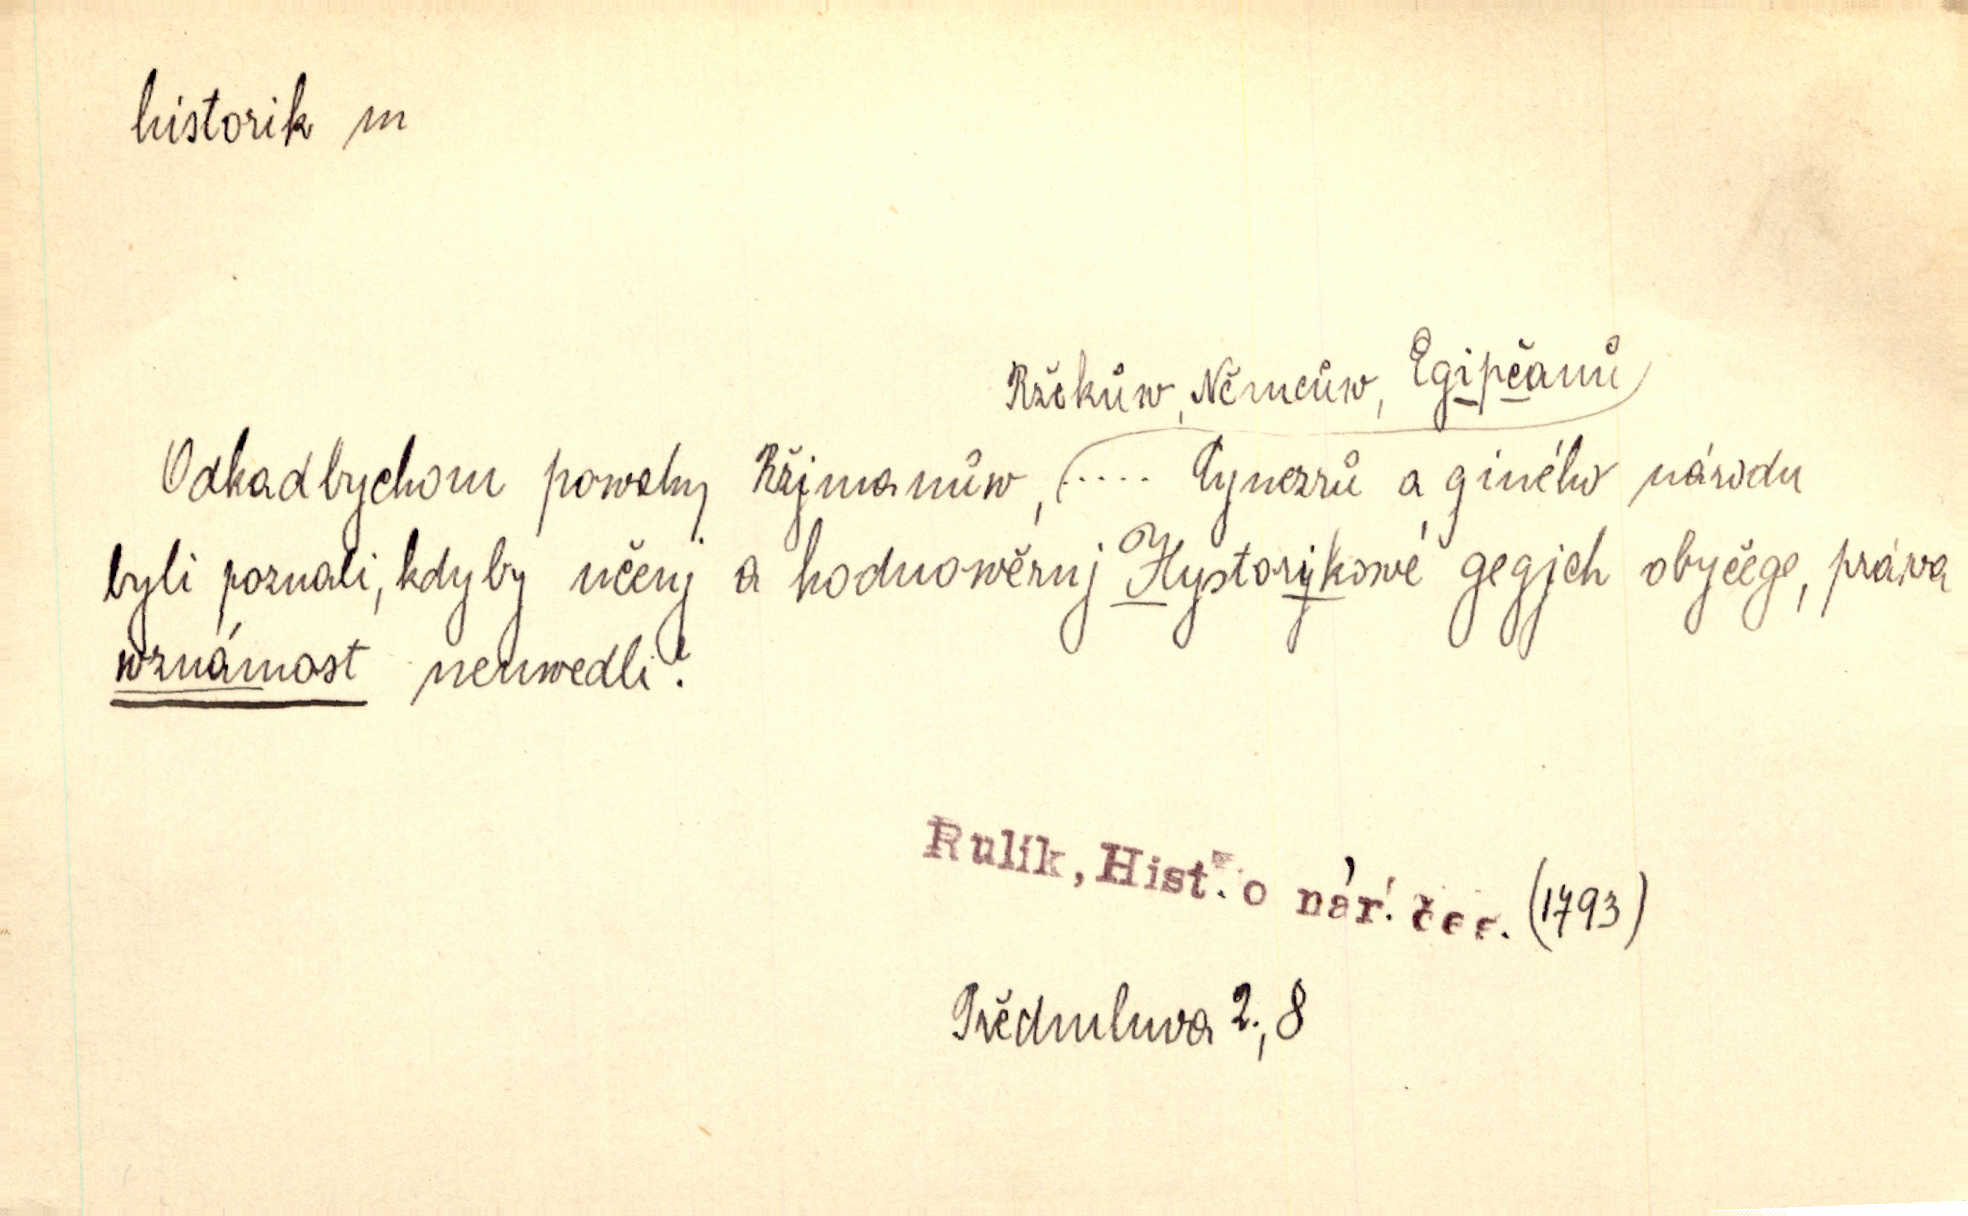 historik m
Ržekůw, Němcůw, Egipčanů
Odkadbychom powahy Ržjmanůw, ..... Cynezrů a giného národu
byli poznali, kdyby učenj a hodnowěrnj Hystorykowé gegjch obyčege, práwa
wznámost neuwedli?
Rulík, Hist. o nár. čes. (1793)
Předmluva 2., 8